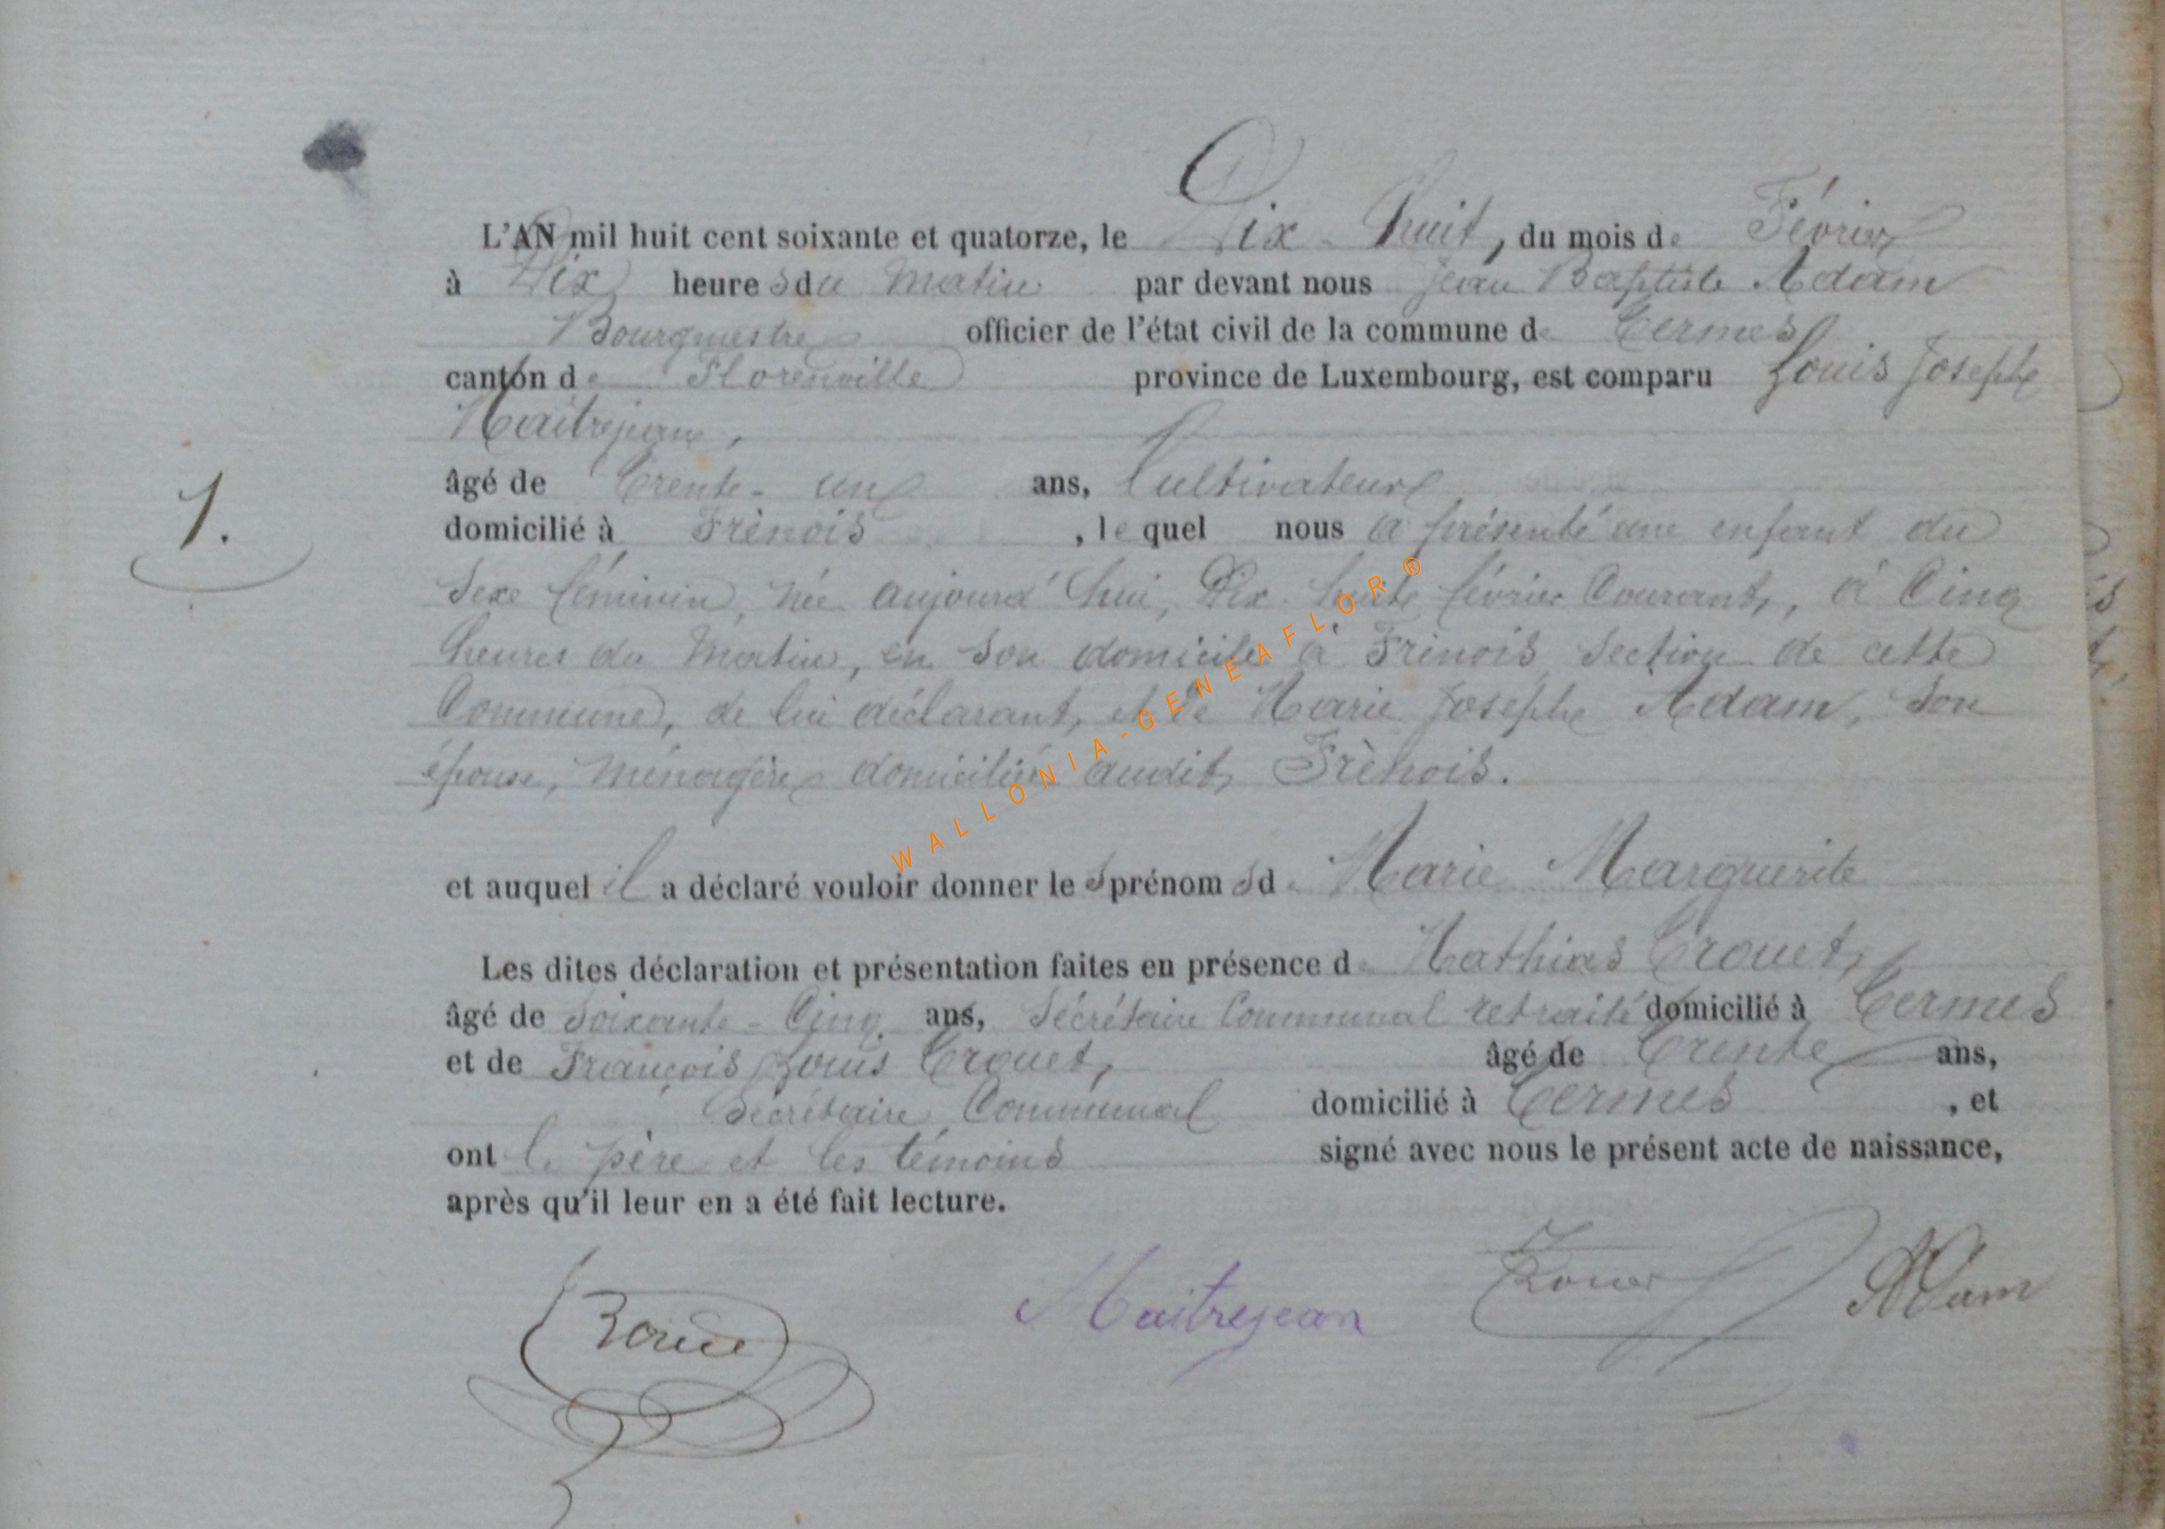 L'AN mil huit cent soixante et quatorze, le Dix-huit, du mois de Février
à Dix heures du Matin par devant nous Jean Baptiste Adam
Bourgmestre officier de l'état civil de la commune de Termes
canton de Florenville province de Luxembourg, est comparu Louis Joseph
Maitrejean,
âgé de Trente-un ans, Cultivateur
1.
domicilié à Frènois, lequel nous a présenté une enfant du
Sexe féminin, née aujourd'hui, Dix huit février Courant, à Cinq
heures du Matin, en son domicile à Frènois Section de cette
Commune, de lui déclarant, et de Marie Joseph Adam, Son
épouse, Ménagère domiciliée audit Frènois.
WALLONIA-GENEAFLOR®
et auquel il a déclaré vouloir donner les prénoms de Marie Marguerite
Les dites déclaration et présentation faites en présence de Mathias Trouet,
âgé de Soixante-Cinq ans, Sécrétaire Communal retraité domicilié à Termes
et de François Louis Trouet, âgé de Trente ans,
Sécrétaire Communal domicilié à Termes, et
ont le père et les témoins signé avec nous le présent acte de naissance,
après qu'il leur en a été fait lecture.
Maitrejean Adam